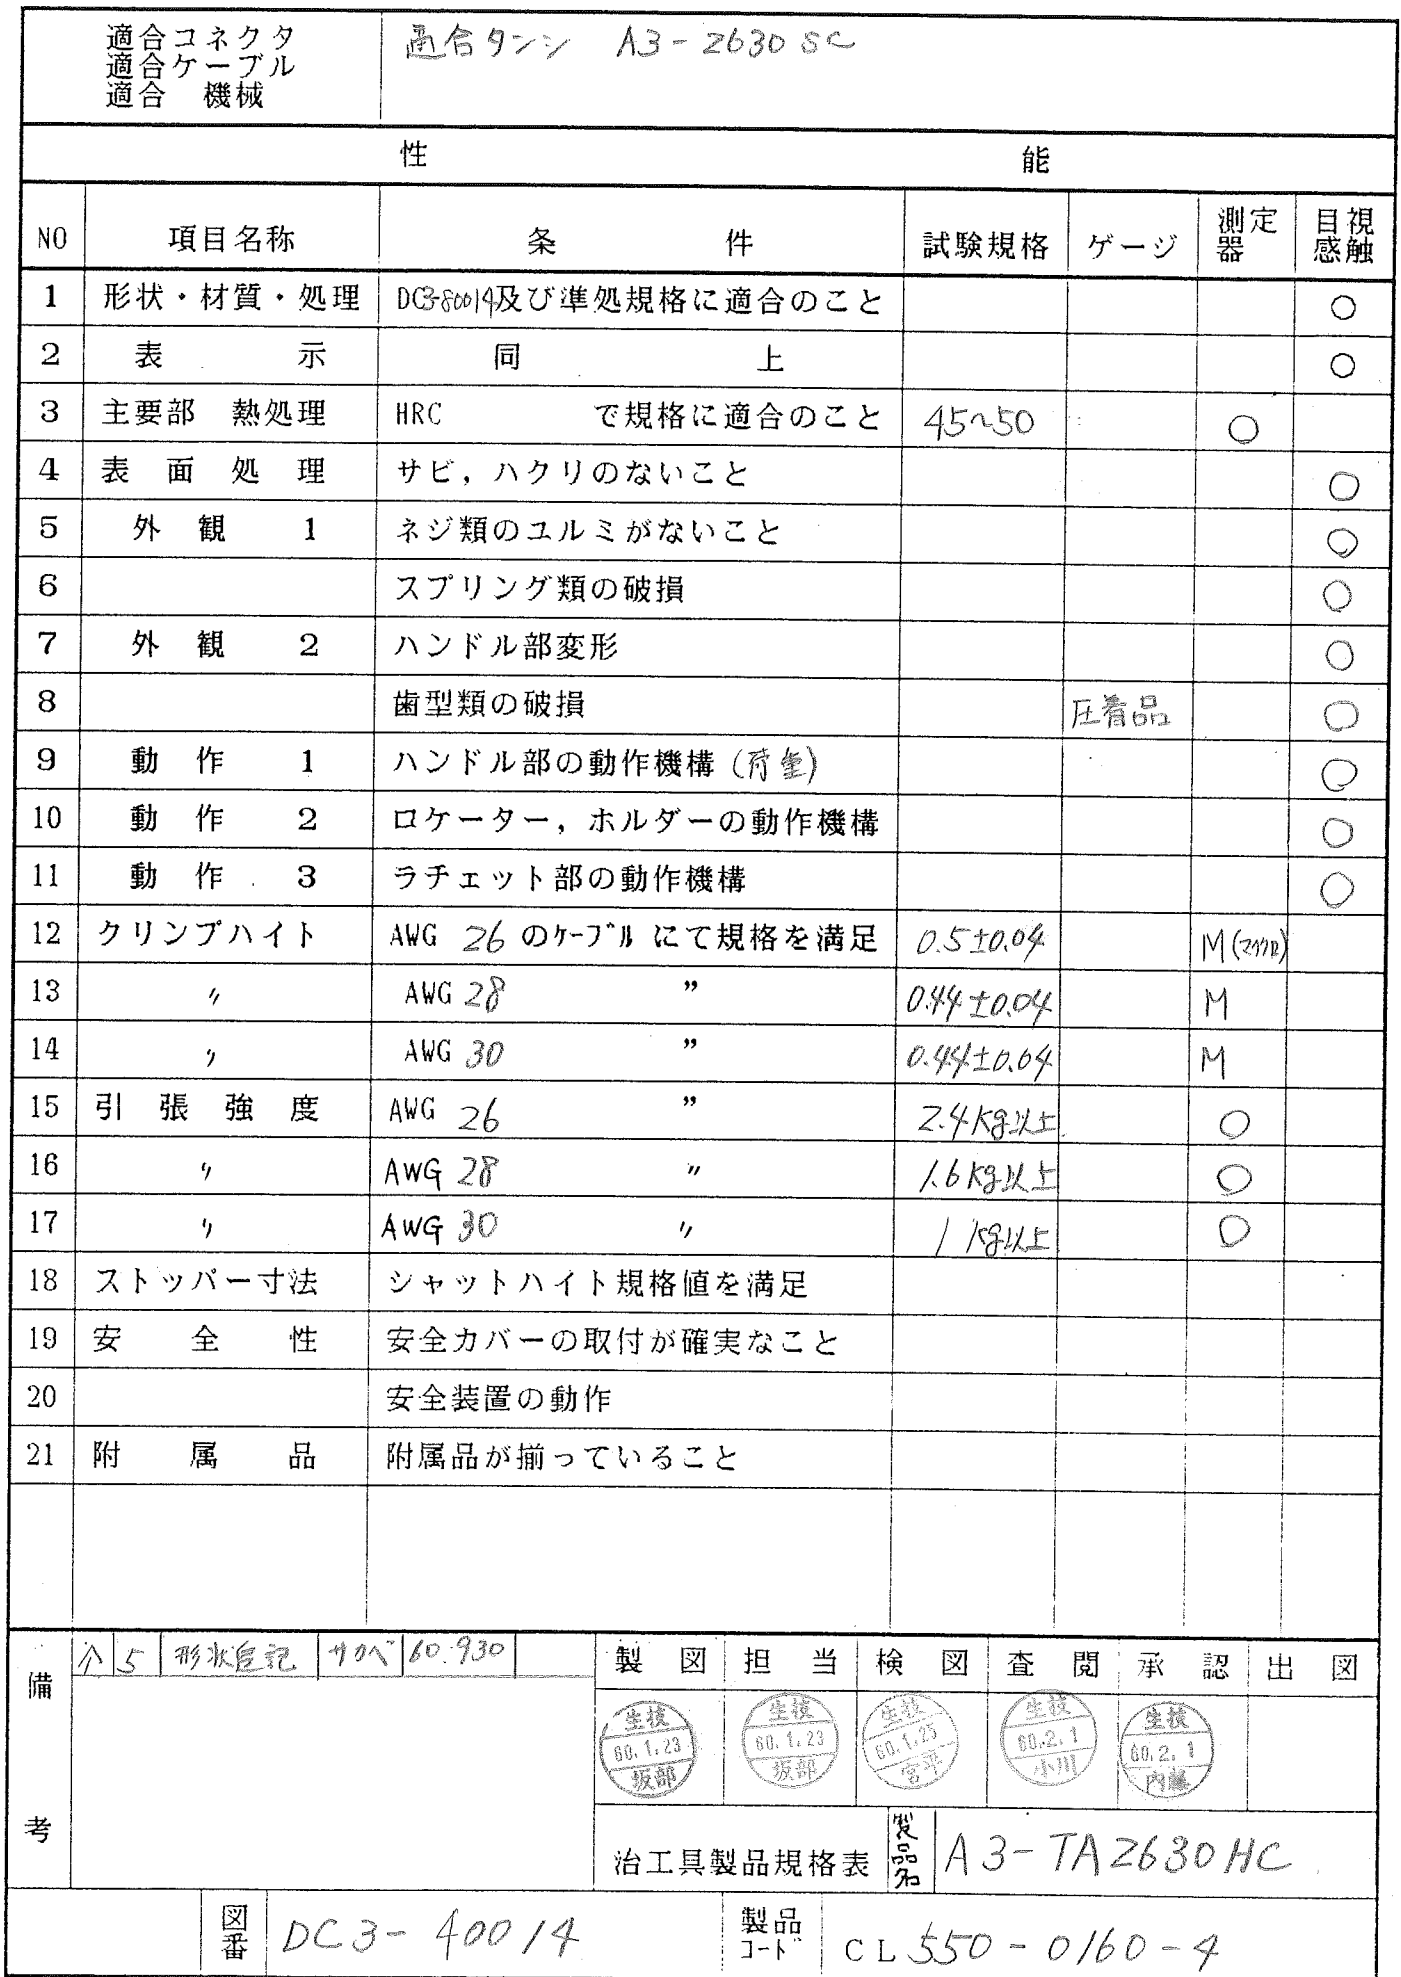 適合コネクタ
適合ケーブル
適合 機械
適合タンシ A3-2630SC
性 能
NO 項目名称 条 件 試験規格 ゲージ 測定器 目視感触
1 形状・材質・処理 DC3-80014及び準処規格に適合のこと ○
2 表 示 同 上 ○
3 主要部 熱処理 HRC で規格に適合のこと 45~50 ○
4 表 面 処 理 サビ,ハクリのないこと ○
5 外 観 1 ネジ類のユルミがないこと ○
6 スプリング類の破損 ○
7 外 観 2 ハンドル部変形 ○
8 歯型類の破損 圧着品 ○
9 動 作 1 ハンドル部の動作機構(荷重) ○
10 動 作 2 ロケーター,ホルダーの動作機構 ○
11 動 作 3 ラチェット部の動作機構 ○
12 クリンプハイト AWG 26 のケーブルにて規格を満足 0.5±0.04 M(マイクロ)
13 〃 AWG 28 〃 0.44±0.04 M
14 〃 AWG 30 〃 0.44±0.04 M
15 引 張 強 度 AWG 26 〃 2.4Kg以上 ○
16 〃 AWG 28 〃 1.6Kg以上 ○
17 〃 AWG 30 〃 1 Kg以上 ○
18 ストッパー寸法 シャットハイト規格値を満足
19 安 全 性 安全カバーの取付が確実なこと
20 安全装置の動作
21 附 属 品 附属品が揃っていること
備考
5 形状追記 サカベ 60.930
製 図 担 当 検 図 査 閲 承 認 出 図
生技 60.1.23 坂部
生技 60.1.23 坂部
生技 60.1.25 宮平
生技 60.2.1 小川
生技 60.2.1 内藤
治工具製品規格表 製品名 A3-TA2630HC
図番 DC3-40014 製品コード CL550-0160-4